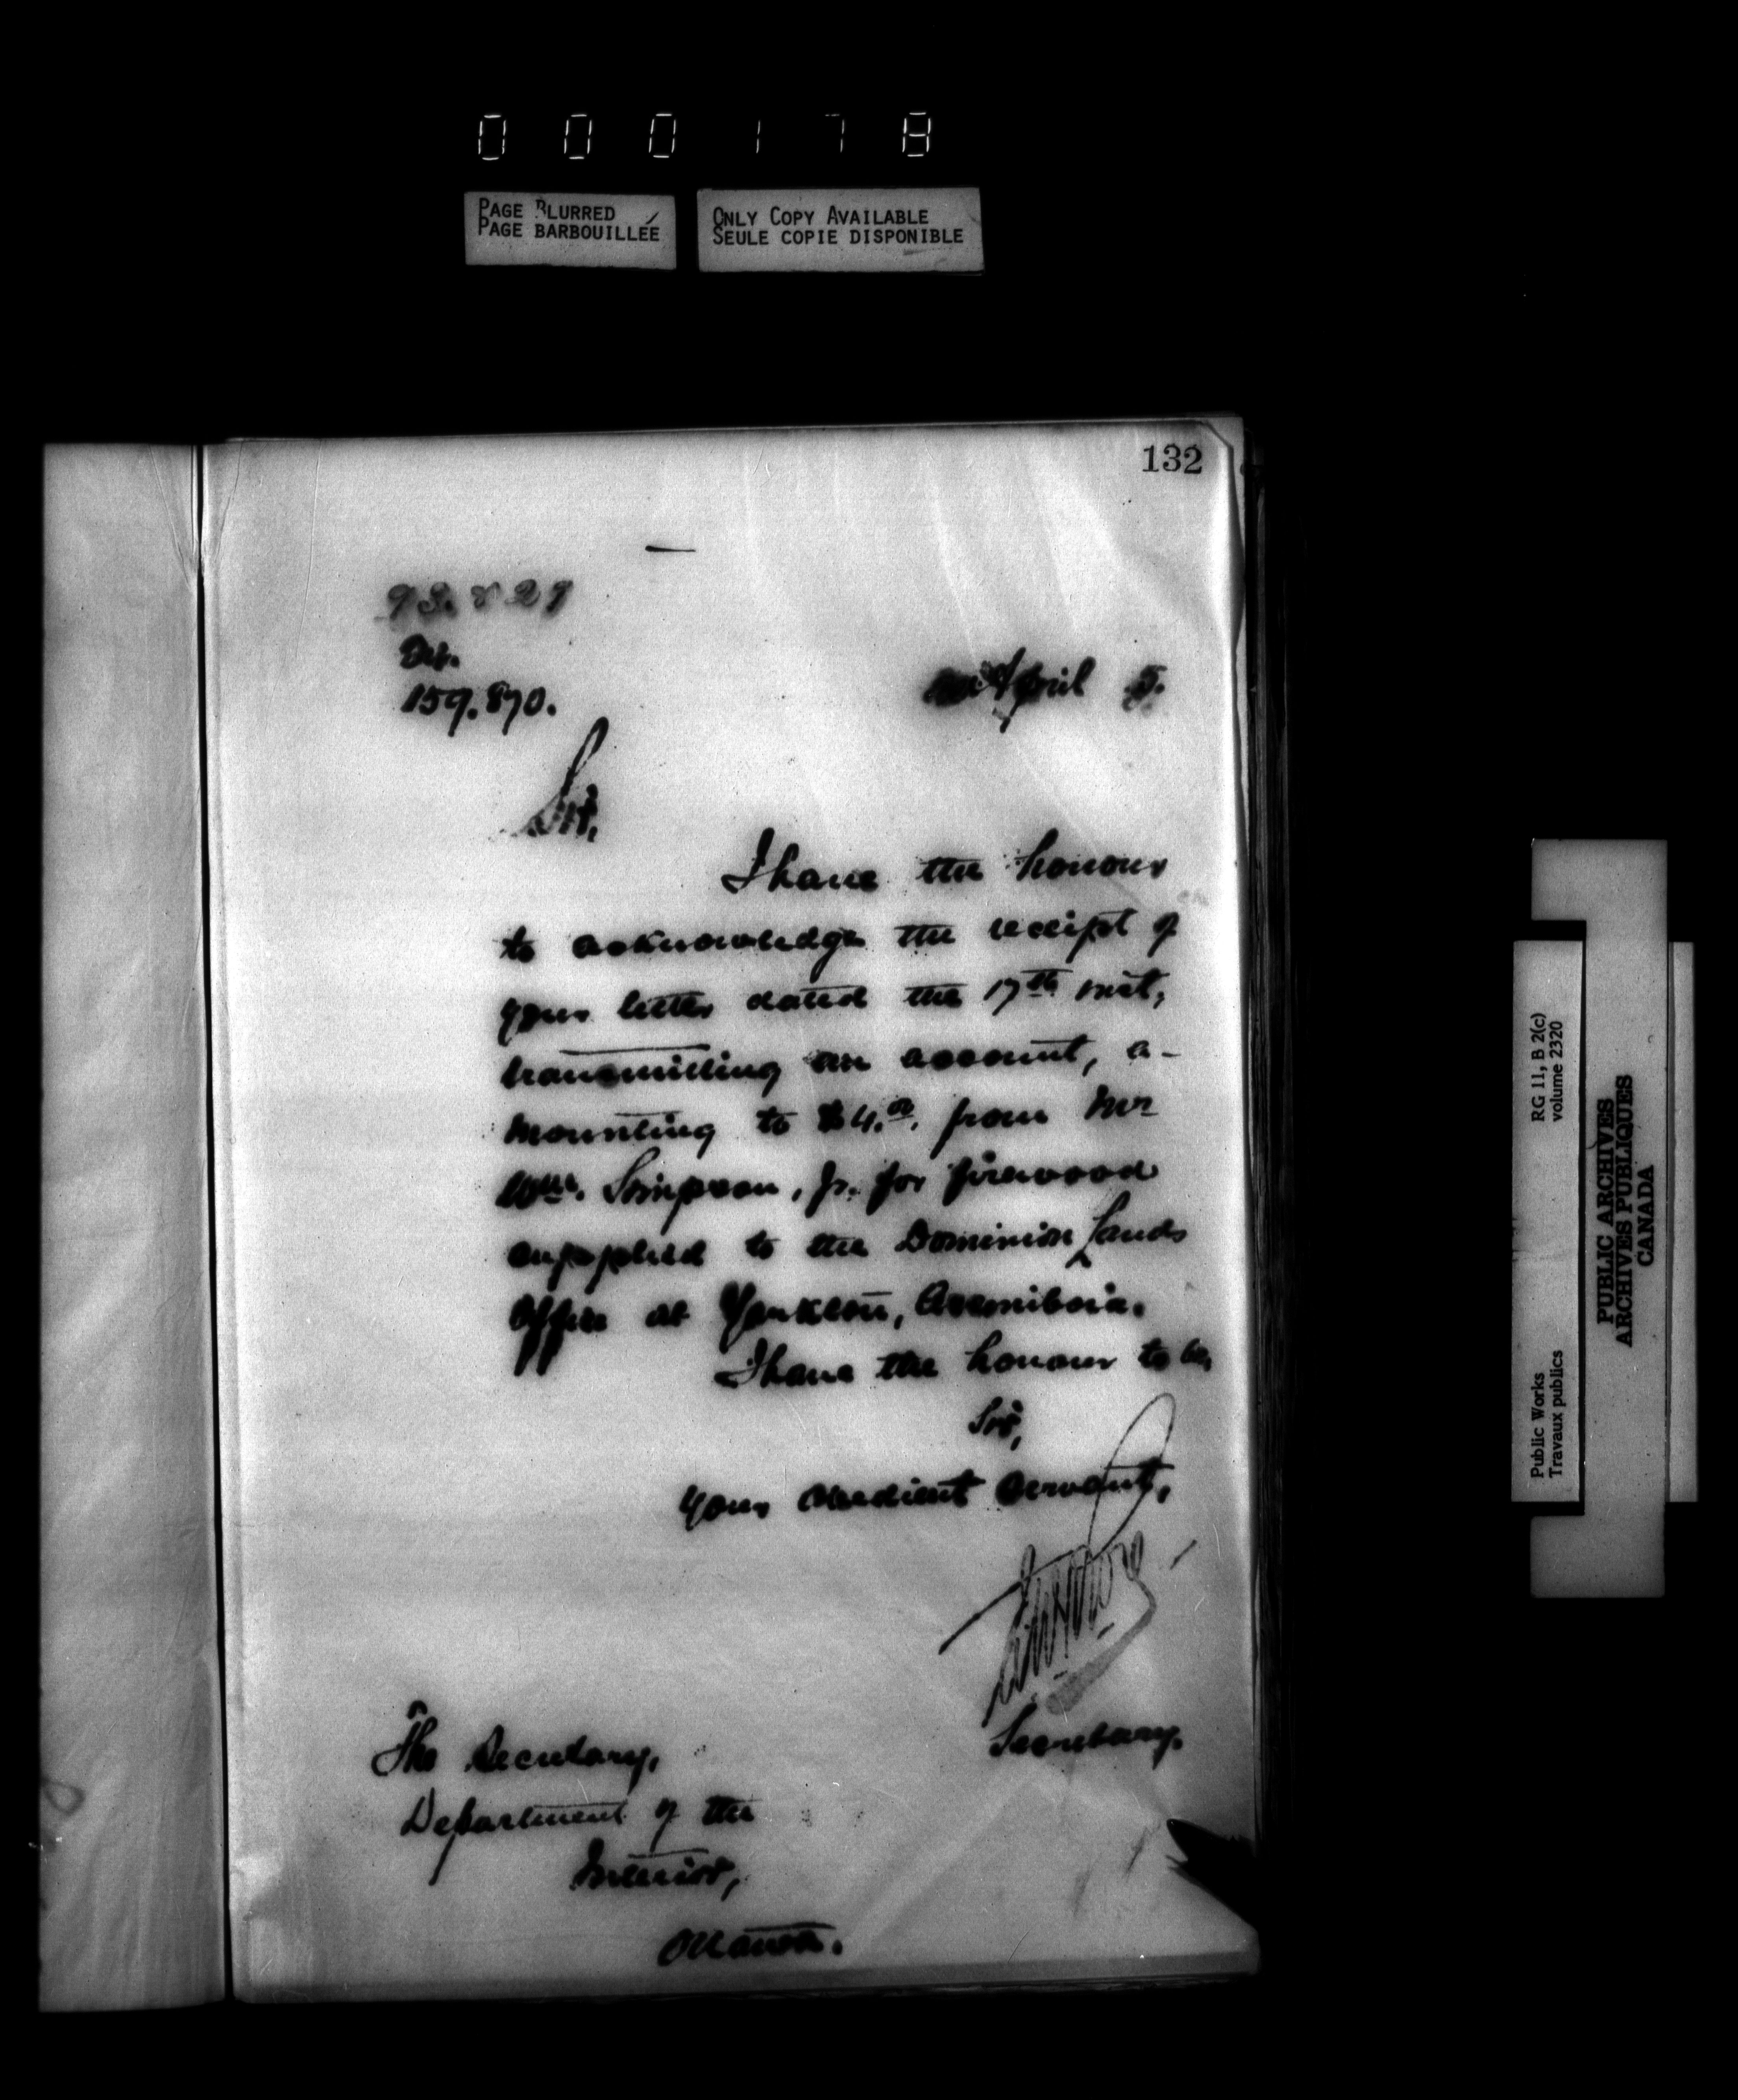 000178
PAGE BLURRED
PAGE BARBOUILLÉE
ONLY COPY AVAILABLE
SEULE COPIE DISPONIBLE
132
159.870.
April 5.
Sir,
I have the honour
to acknowledge the receipt of
your letter dated the 17th inst,
transmitting an account, a-
mounting to $4.00. from Mr
Wm. Simpson, Jr. for firewood
supplied to the Dominion Lands
Office at Yorkton, Assiniboia.
I have the honour to be,
Sir,
Your obedient servant,
Secretary.
The Secretary,
Department of the
Interior,
Ottawa.
Public Works
Travaux publics
RG 11, B 2(c)
volume 2320
PUBLIC ARCHIVES
ARCHIVES PUBLIQUES
CANADA